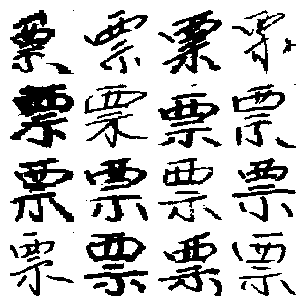 票票票票
票票票票
票票票票
票票票票